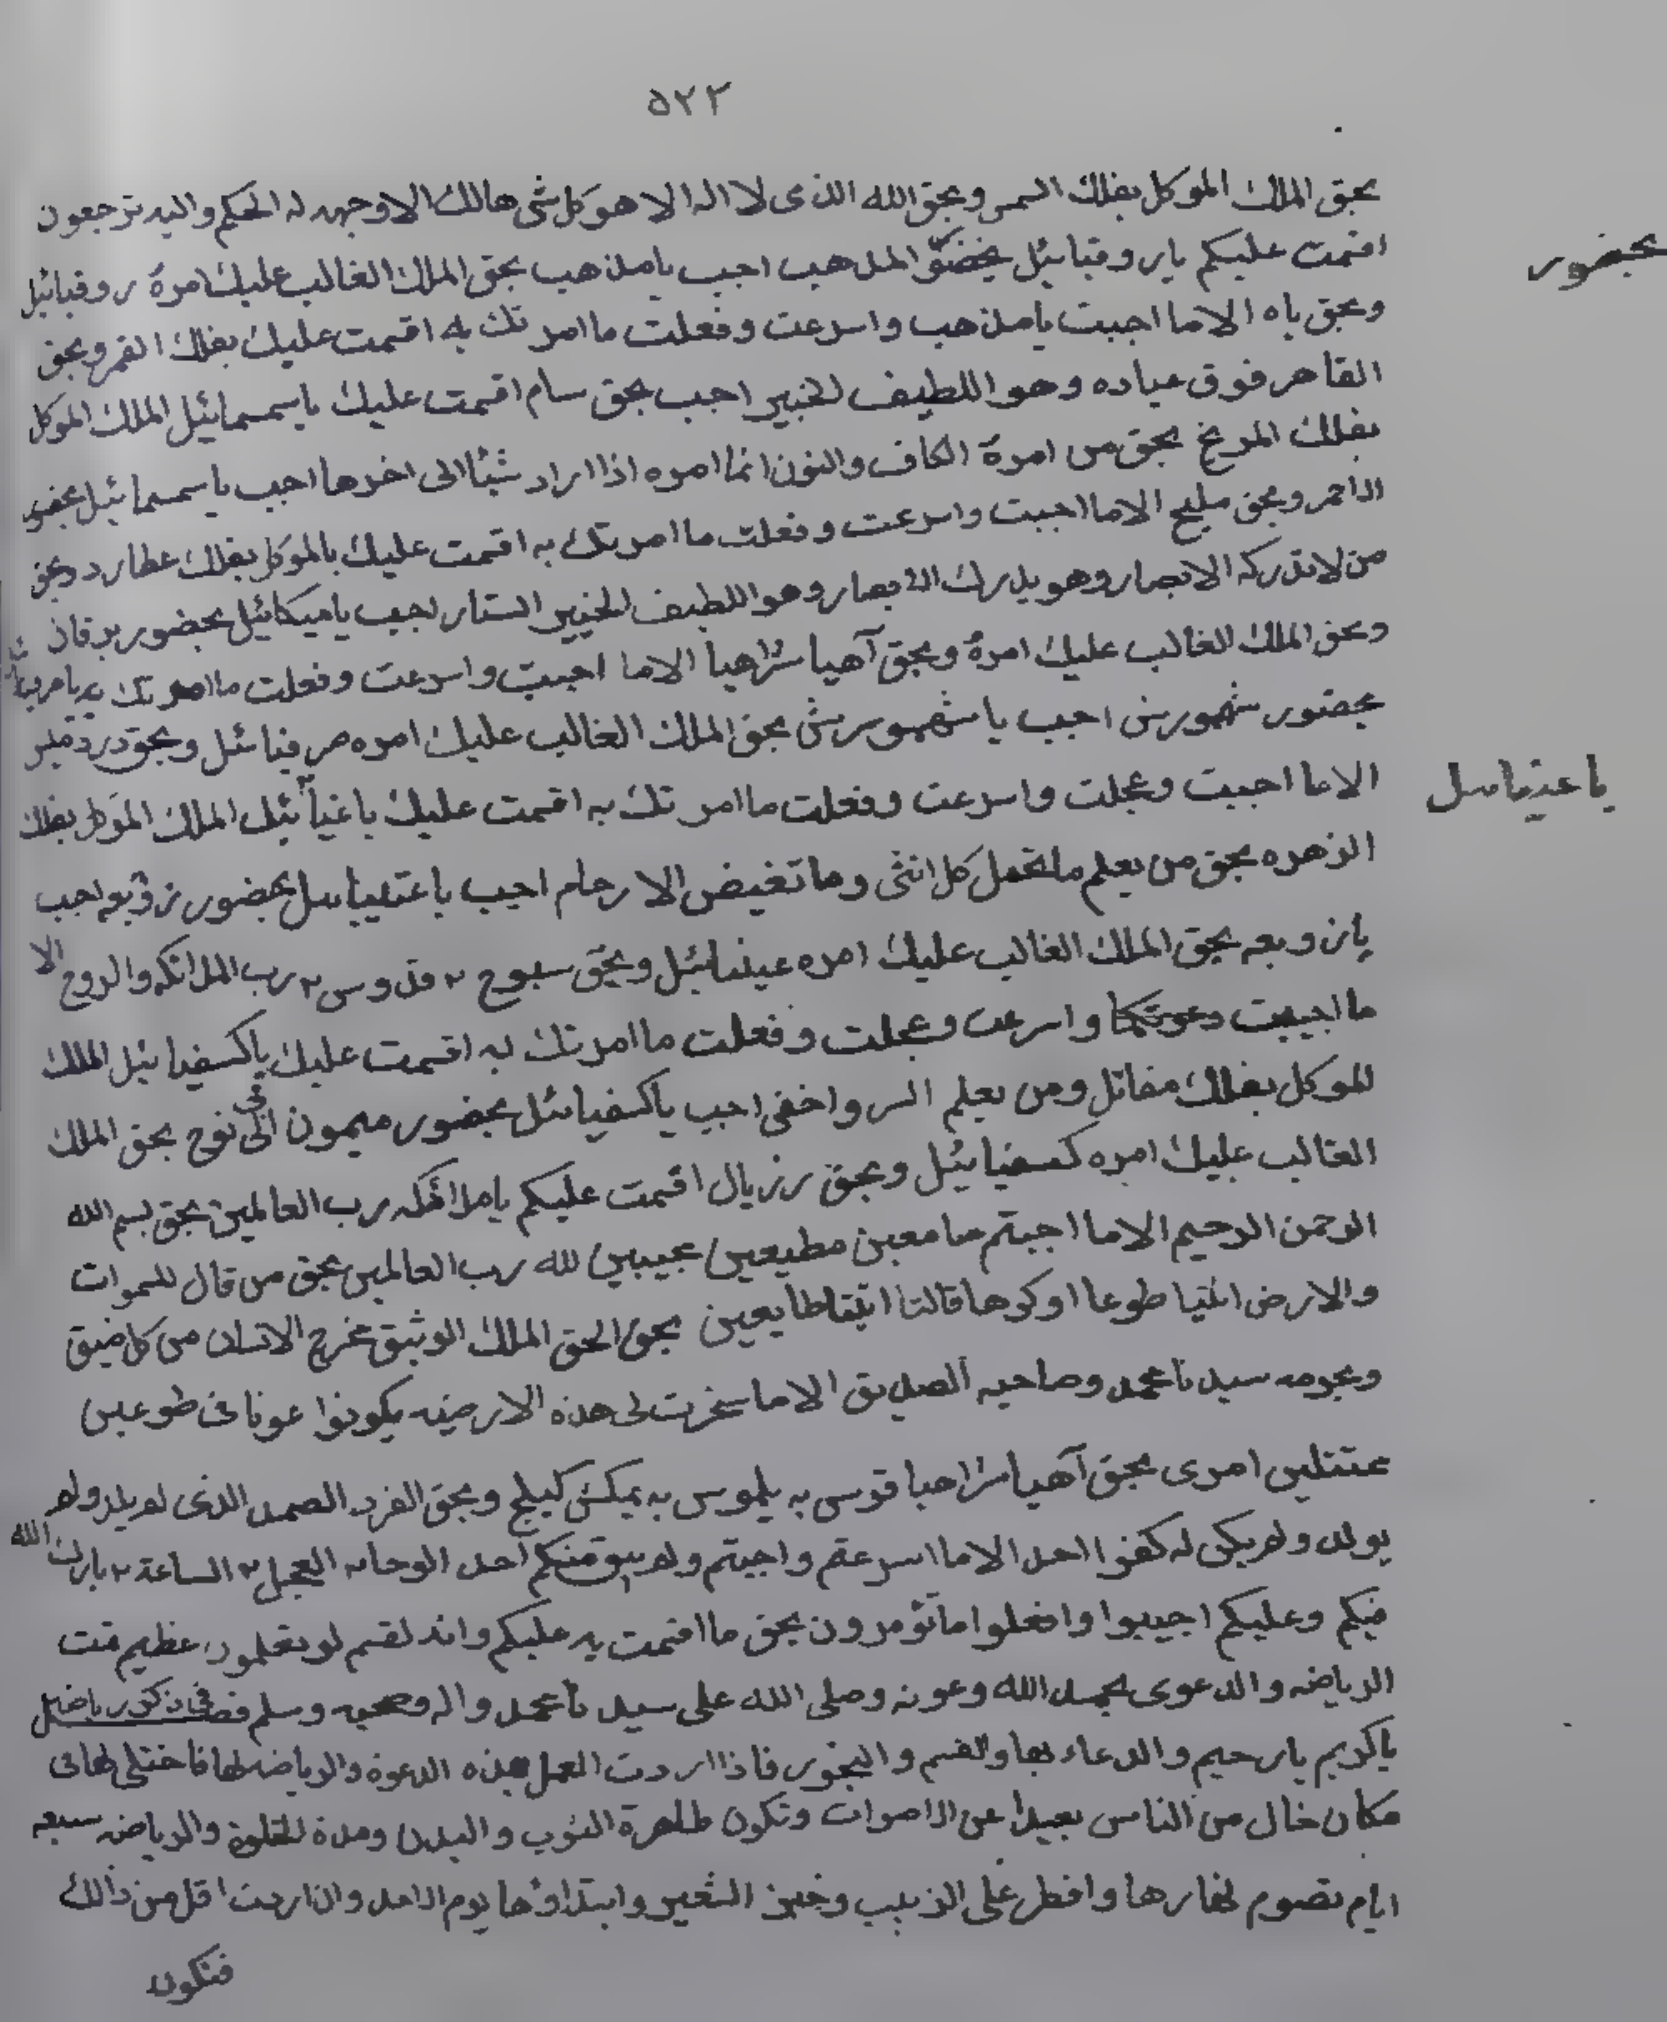 ٥٢٢
بحق الملك الموكل بفلك الشمس وبحق الله الذى لا اله الا هو كل شى هالك الا وجهه له الحكم واليه ترجعون
بحضور
اقسمت عليكم يا روقيائيل المذهب اجب يا مذهب بحق الملك الغالب عليك امرة روقيائيل
وبحق ياه الا ما اجبت يا مذهب واسرعت وفعلت ما امرتك به اقسمت عليك بفلك القمر وبحق
القاهر فوق عباده وهو اللطيف الخبير اجب بحق سام اقسمت عليك يا سمسمائيل الملك الموكل
بفلك المريخ بحق من امرة الكاف والنون انما امره اذا اراد شيئا الى اخرها اجب يا سمسمائيل بحضور
الاحمر وبحق مليح الا ما اجبت واسرعت وفعلت ما امرتك به اقسمت عليك بالموكل بفلك عطارد وبحق
من لا تدركه الابصار وهو يدرك الابصار وهو اللطيف الخبير الستار اجب يا ميكائيل بحضور برقان
وبحق الملك الغالب عليك امرة وبحق آهيا شراهيا الا ما اجبت واسرعت وفعلت ما امرتك به
بحضور شمهورش اجب يا شمهورش بحق الملك الغالب عليك امره صرفيائيل وبحق
الا ما اجبت وعجلت واسرعت وفعلت ما امرتك به اقسمت عليك يا الملك الموكل بفلك
يا عنيائيل
الزهره بحق من يعلم ما تحمل كل انثى وما تغيض الارحام اجب يا بحضور زوبعه اجب
يا زوبعه بحق الملك الغالب عليك امره عينيائيل وبحق سبوح ٢ قدوس ٢ رب الملائكه والروح الا
ما اجبت واسرعت وعجلت وفعلت ما امرتك به اقسمت عليك يا كسفيائيل الملك
الموكل بفلك مقاتل ومن يعلم السر واخفى اجب يا كسفيائيل بحضور ميمون ابى نوح بحق الملك
الغالب عليك امره كسفيائيل وبحق رزيال اقسمت عليكم يا ملائكه رب العالمين بحق بسم الله
الرحمن الرحيم الا ما اجبتم سامعين مطيعين مجيبين لله رب العالمين بحق من قال للسموات
والارض ائتيا طوعا او كرها قالتا اتينا طايعين بحق الحق الملك الوثيق مخرج الانسان من كل ضيق
وبحرمه سيدنا محمد وصاحبه الصديق الا ما سخرت لى هذه الارضيه يكونوا عونا فى طوعين
ممتثلين امرى بحق آهيا شراهيا قوس به يلموس به يمكش كيلج وبحق الفرد الصمد الذى لم يلد ولم
يولد ولم يكن له كفوا احد الا ما اسرعتم واجبتم ولم يبق منكم احد الوحا ٢ العجل ٢ الساعة ٢ بارك الله
فيكم وعليكم اجيبوا وافعلوا ما تؤمرون بحق ما اقسمت به عليكم وانه لقسم لو تعلمون عظيم تمت
الرياضه والدعوى بحمد الله وعونه وصلى الله على سيدنا محمد واله وصحبه وسلم فصل فى ذكر رياضة
يا كريم يا رحيم والدعاء بها والقسم والبخور فاذا اردت العمل بهذه الدعوة والرياضه لها فاختلى لها فى
مكان خال من الناس بعيدا عن الاصوات وتكون طاهرة الثوب والبدن ومدة الخلوة والرياضه سبعه
ايام تصوم نهارها وافطر على الزبيب وخبز الشعير وابتداؤها يوم الاحد وان اردت اقل من ذالك
فتكون